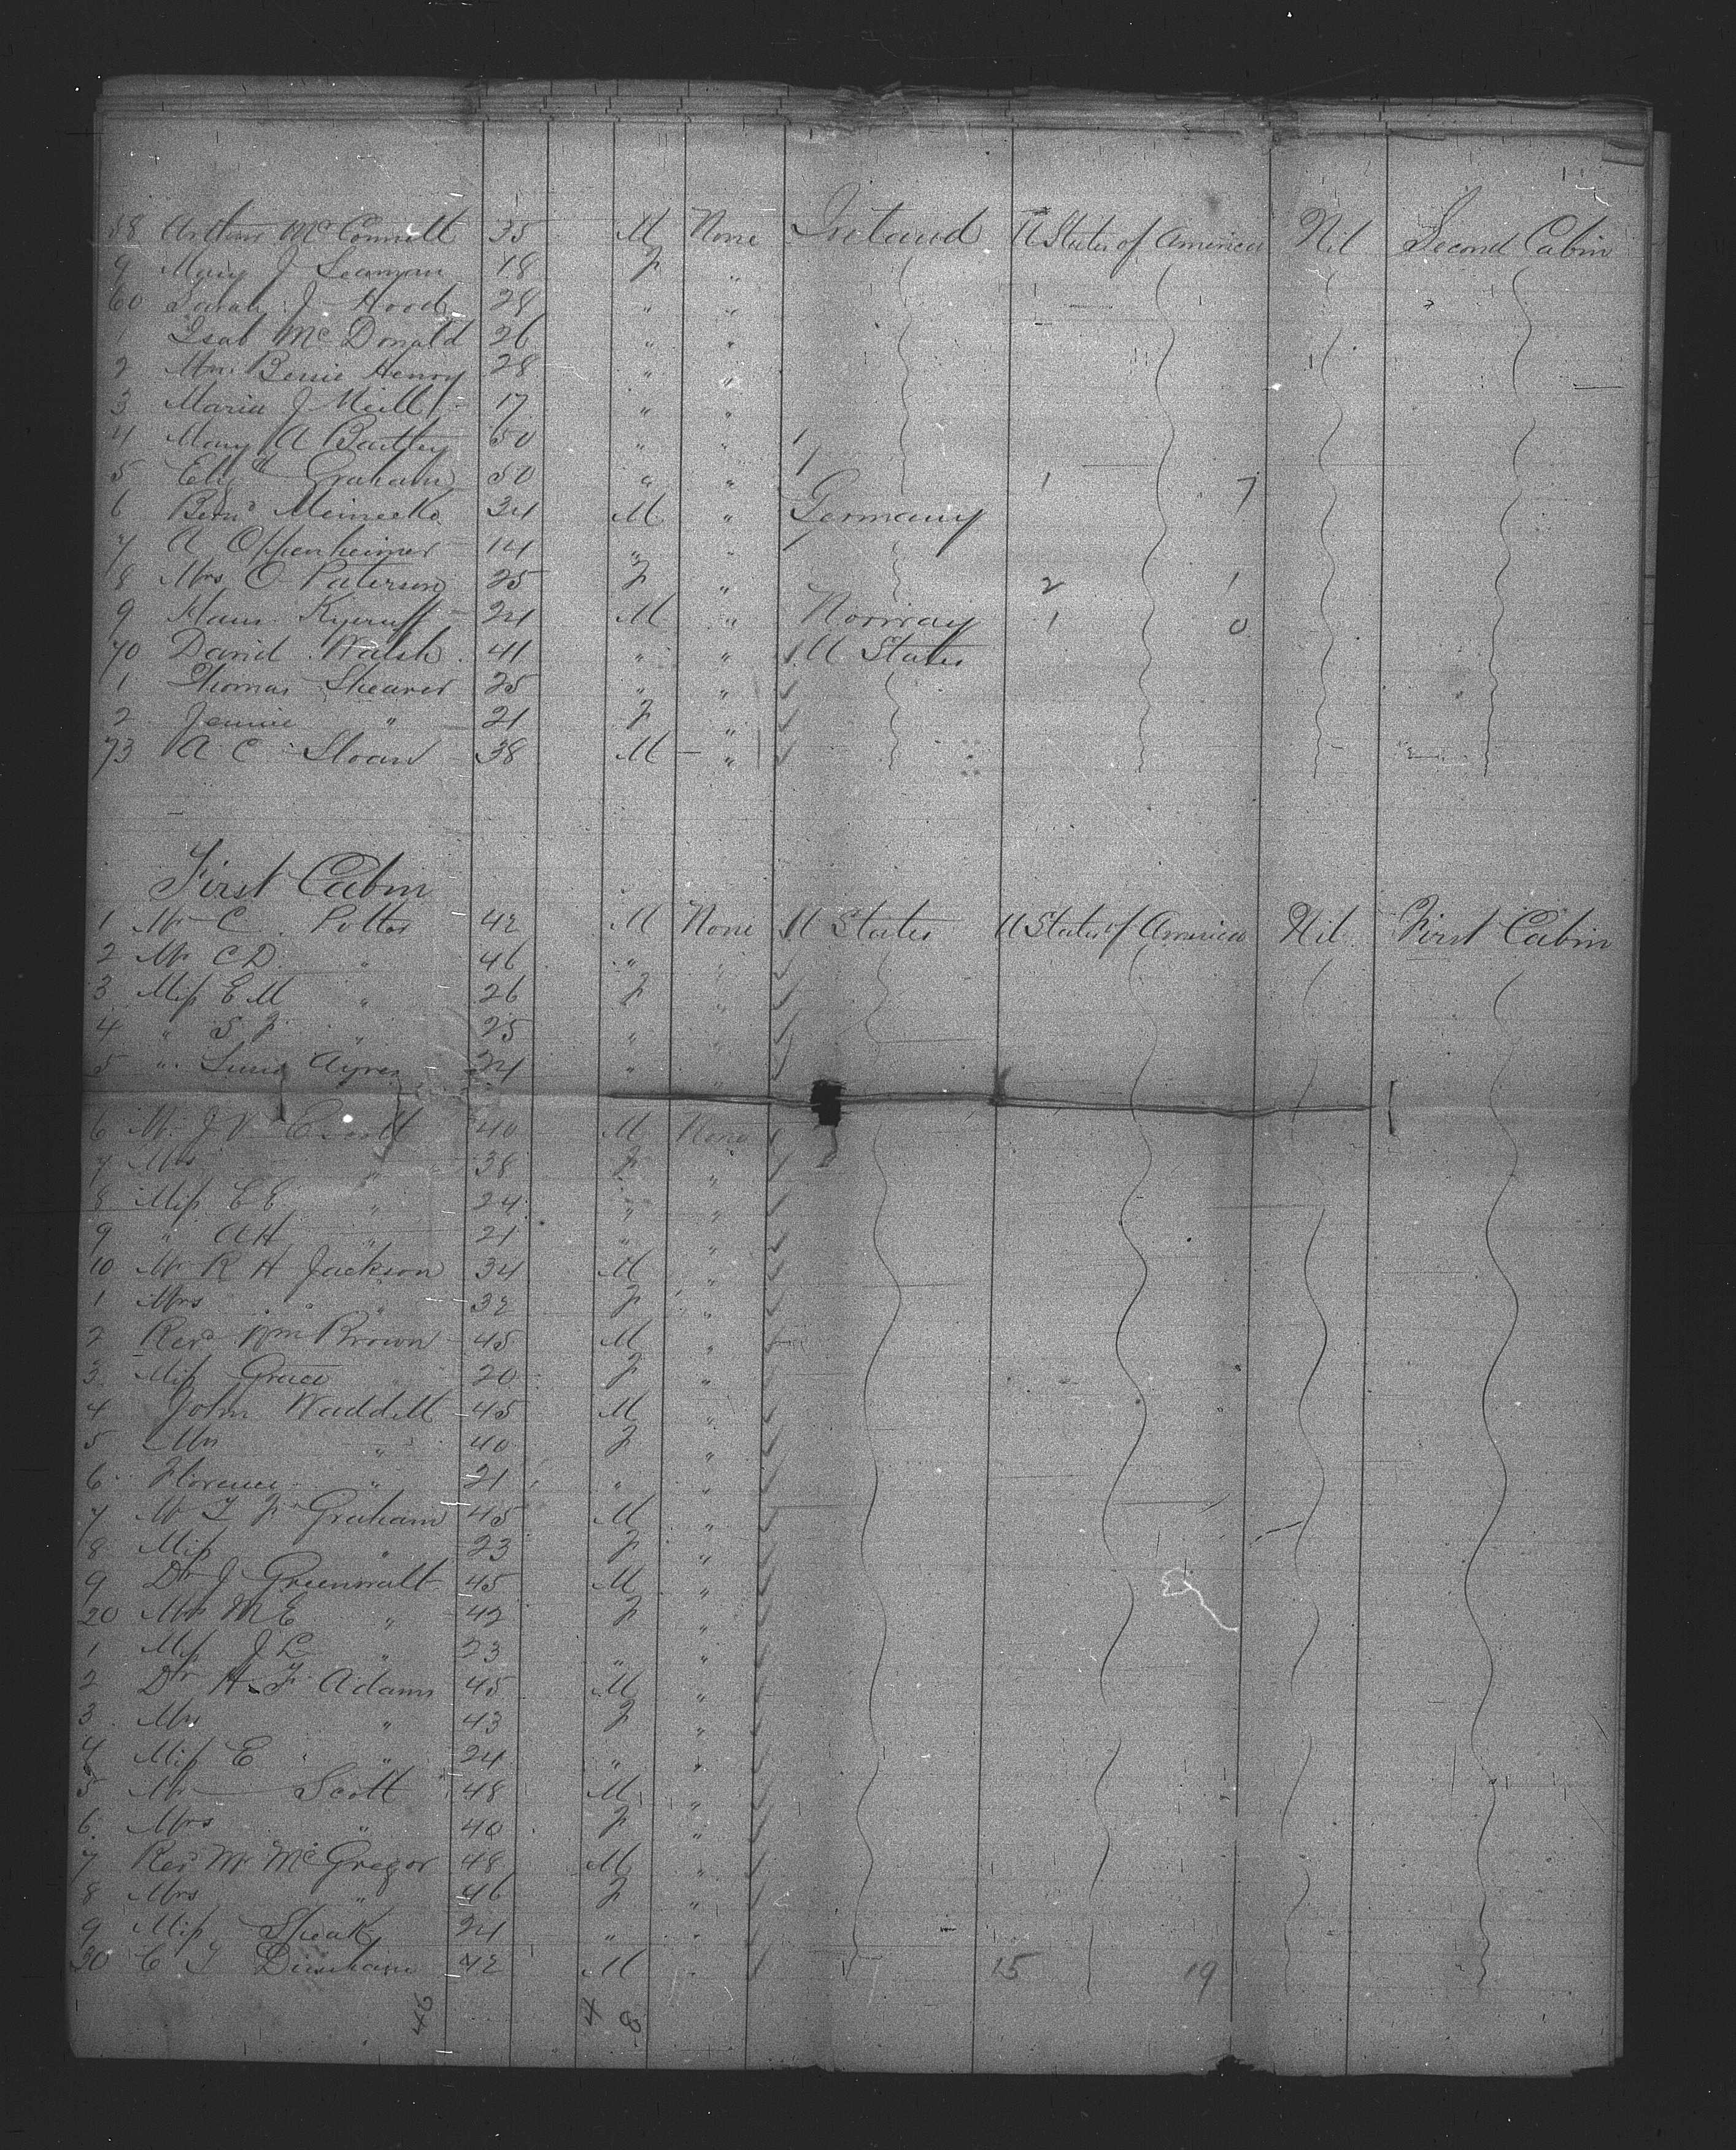 58 Arthur McConnell 35 M None Ireland U States of America Nil Second Cabin
9 Mary J Seaman 18 F " "
60 Sarah J Hood 28 " "
1 Isab McDonald 26 " "
2 Mrs Bessie Henry 28 " "
3 Maria J Neill 17 " "
4 Mary A Bartley 50 " "
5 Eliz Graham 50 " " 1 7
6 Benj Meinecke 34 M " Germany
7 A Oppenheimer 14 " "
8 Mrs O Paterson 25 F " 2 1
9 Hans 24 M " Norway 1 0
70 David Walsh 41 " " U States
1 Thomas Shearer 25 " "
2 Jennie " 21 F "
73 A. C. Sloan 38 M "
First Cabin
1 Mr C. Potter 42 M None U States U States of America Nil First Cabin
2 Mr C D " 46 "
3 Miss E M " 26 F
4 " S F " 25 "
5 " Ayres 24 "
6 Mr J V 40 M None
7 Mrs " 38 F "
8 Miss E E " 24 " "
9 " A H " 21 " "
10 Mr R H Jackson 34 M "
1 Mrs " " 32 F "
2 Revd Wm Brown 45 M "
3 Miss Grace 20 F "
4 John Waddell 45 M "
5 Mrs " 40 F "
6 Florence " 21 " "
7 Mr T F Graham 45 M "
8 Miss " 23 F "
9 Dr J Greenwalt 45 M "
20 Mrs M E " 42 F "
1 Miss J L " 23 " "
2 Dr H. F. Adams 45 M "
3 Mrs " 43 F "
4 Miss E " 24 " "
5 Mr Scott 48 M "
6 Mrs " 40 F "
7 Revd Mr McGregor 48 M "
8 Mrs " 46 F "
9 Miss 24 " "
30 C T 42 M " 15 19
46 4 8